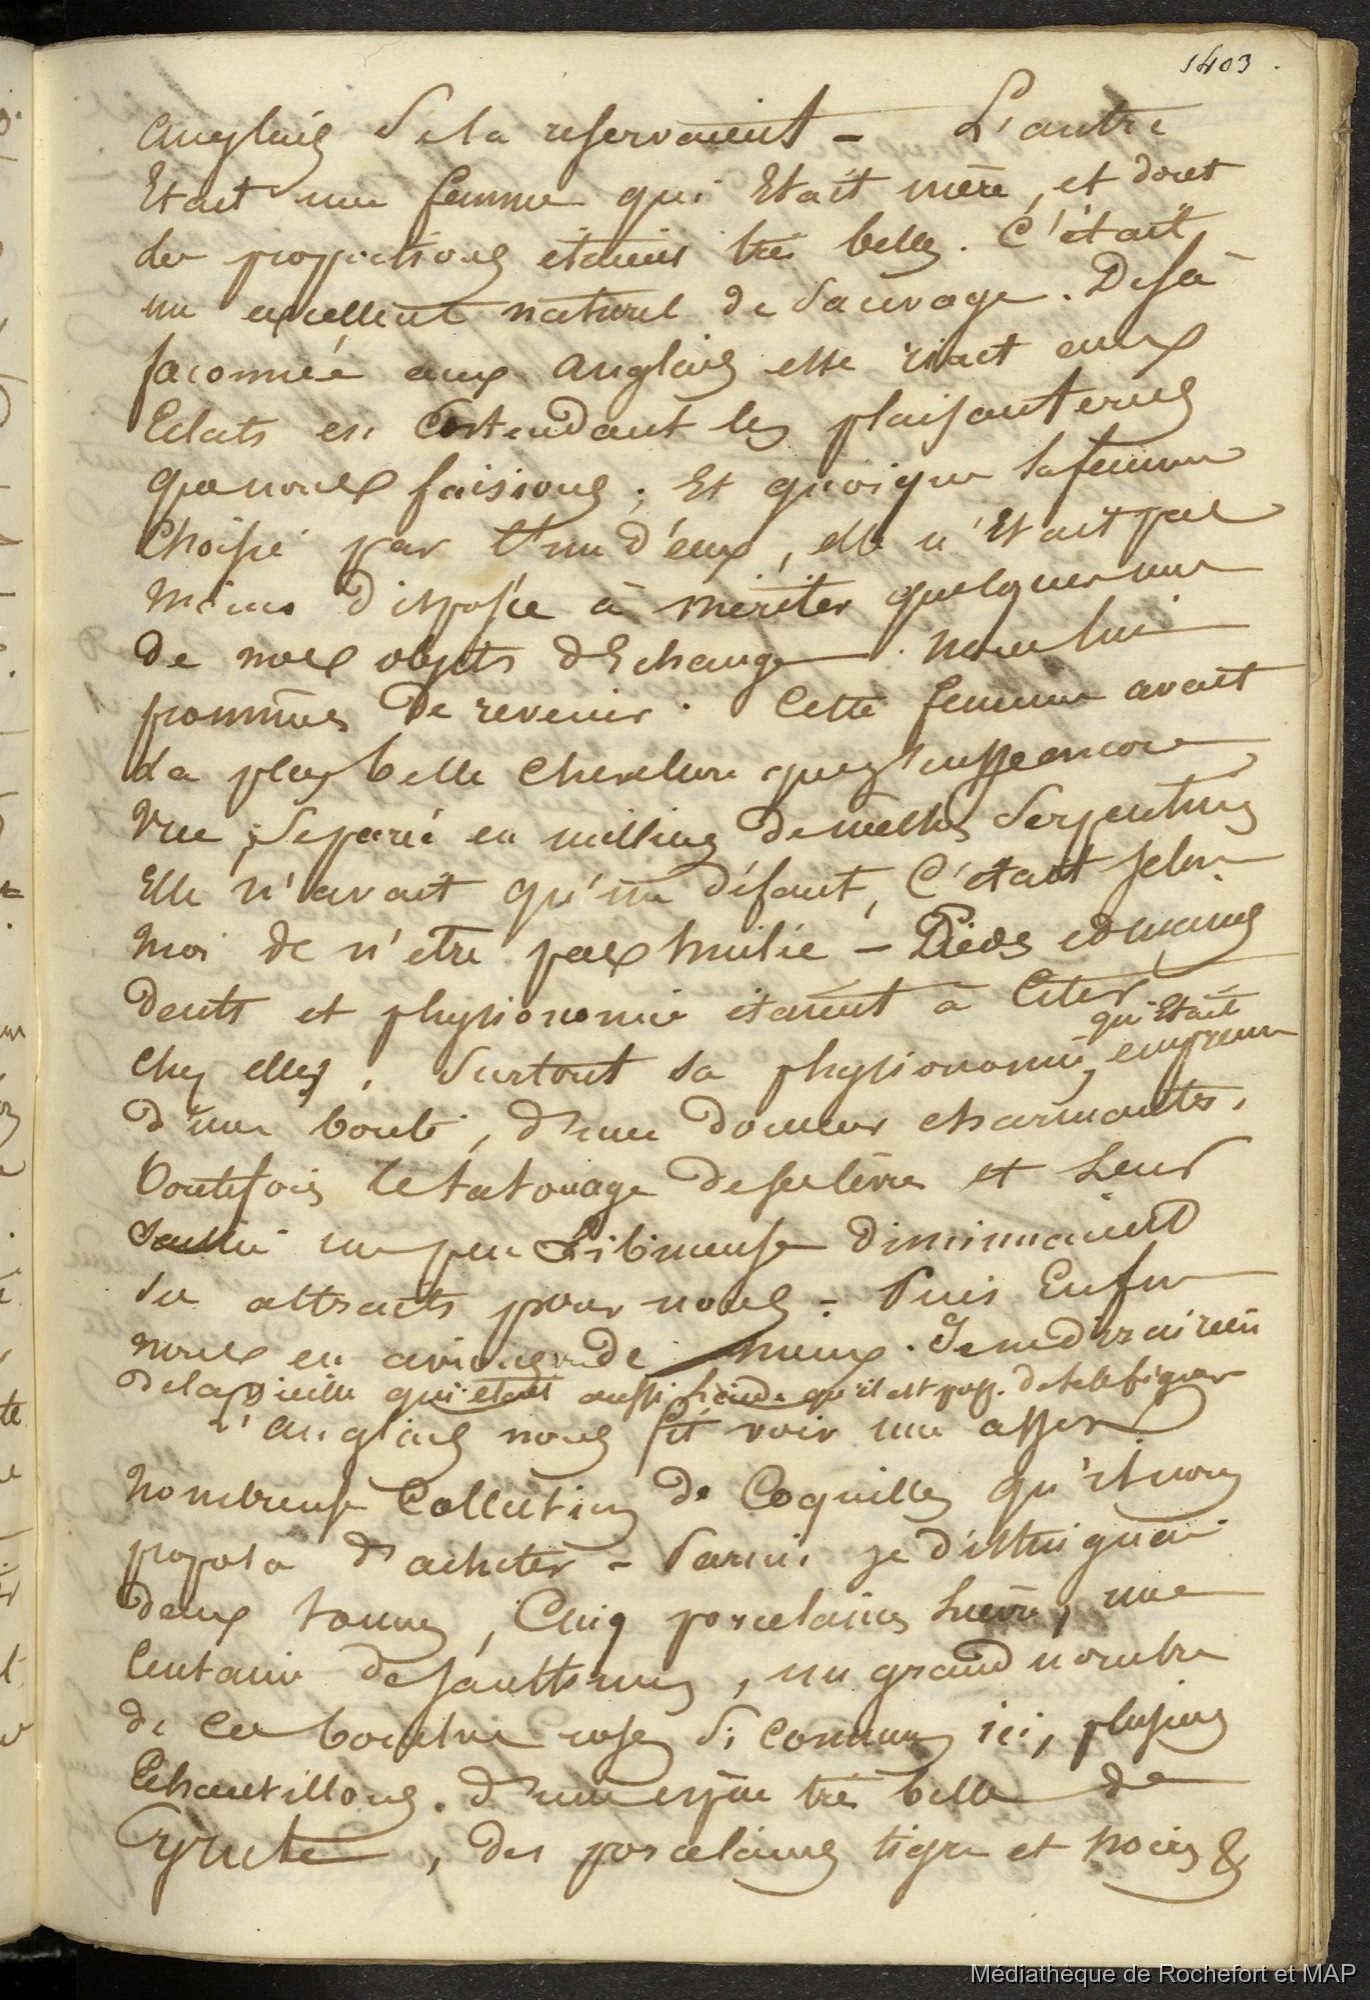 1403.
anglais se la reservaient - L'autre
Etait une femme qui Etait mère, et dont
les proportions étaient très belles. C'était
un excellent naturel de Sauvage. Déjà
façonnée aux anglais elle riait aux
Eclats en Entendant les plaisanteries
que nous faisions. Et quoique la femme
Choisie par l'un d'eux, elle n'Etait pas
moins disposée à mériter quelques uns
de nos objets d'Echange. nous lui
promîmes de revenir. Cette femme avait
la plus belle chevelure que j'eusse encore
Vue, séparée en milliers de mêches Serpentines
Elle n'avait qu'un défaut, C'était selon
moi de n'etre pas huilée - Pieds et mains
dents et physionomie étaient à Citer
chez elles. Surtout sa physionomie qui Etait empreinte
d'une bonté, d'une douceur charmantes.
Toutefois le tatouage de ses lèvres et leur
un peu Libineuse diminuaient
ses attraits pour nous - Puis Enfin
nous en avions vu de mieux. Je ne dirai rien
de la Vieille qui était aussi laide qu'il est poss. de se le figurer
L'anglais nous fit voir une assez
nombreuse Collection de Coquilles qu'il nous
proposa d'acheter - Parmi je distinguai
deux tonnes, Cinq porcelaines lièvre, une
Centaine de sauts, un grand nombre
de ces bouches roses si communes ici, plusieurs
Echantillons d'une espèce très belle de
, des porcelaines tigre et noires &
Médiathèque de Rochefort et MAP